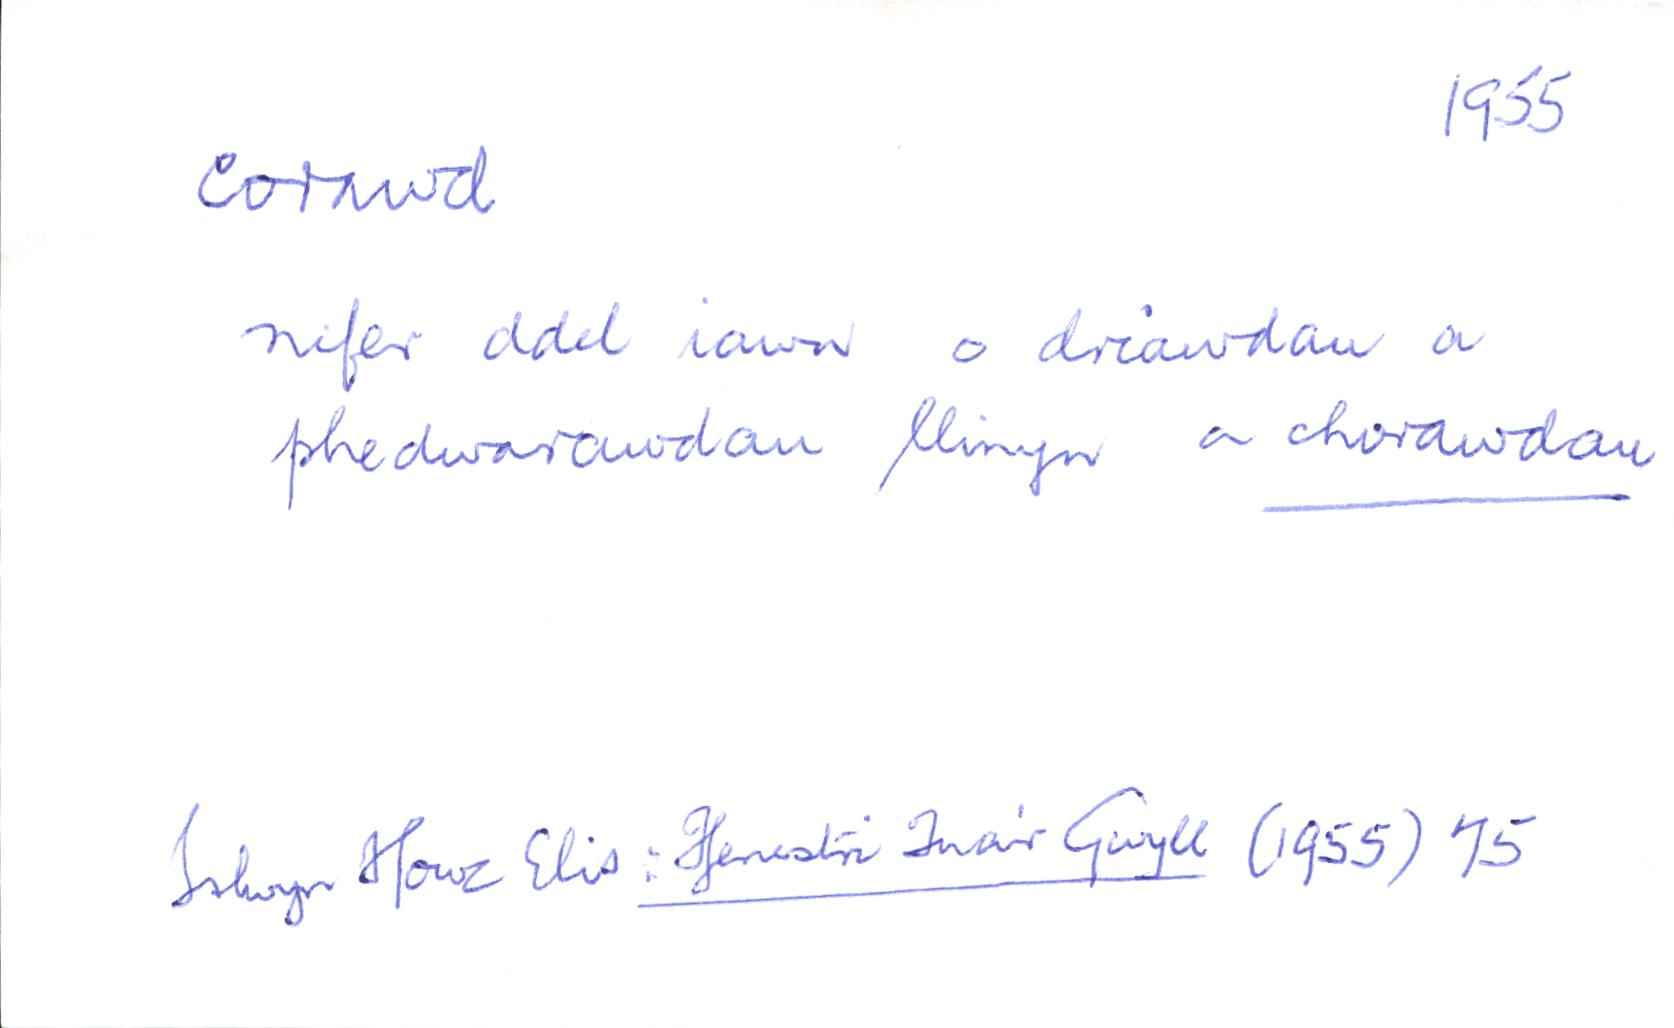 1955
corawd
nifer ddel iawn o driawdau a
phedwarawdau llinyn a chorawdau
Islwyn Ffowc Elis : Ffenestri Tua'r Gwyll (1955) 75